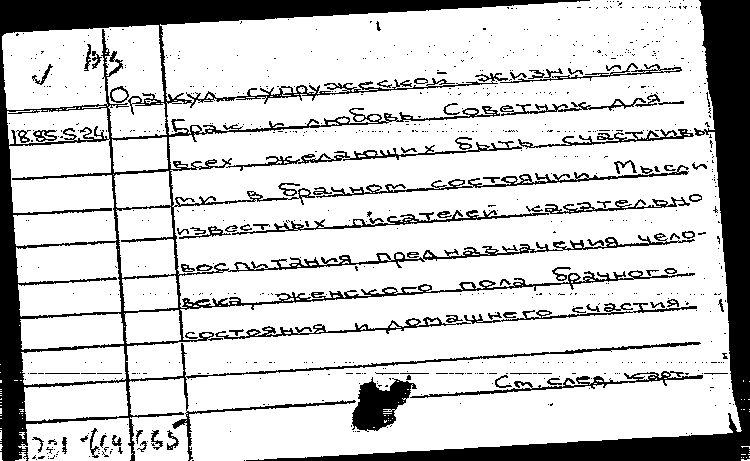 ✓ 193
Оракул супружеской жизни, или
18.85.5.24 Брак и любовь. Советник для
всех, желающих быть счастливы
ми в брачном состоянии. Мысли
известных писателей касательно
воспитания, предназначения чело-
века, женского пола, брачного
состояния и домашнего счастия.
См. след. карт.
281 664 665